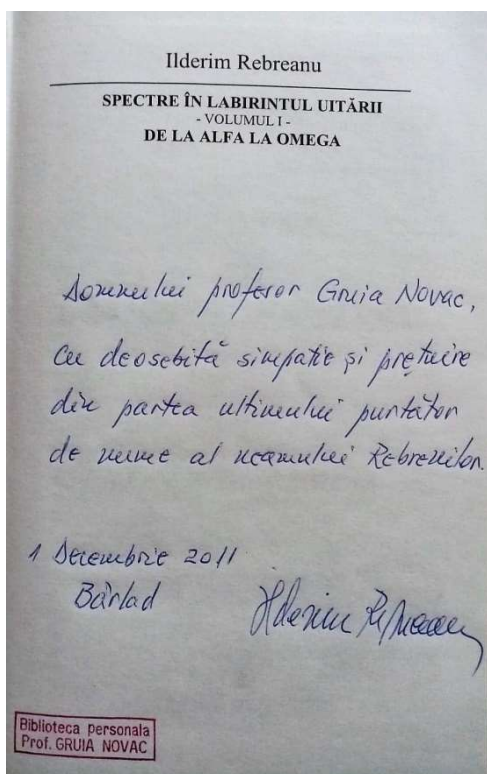 Ilderim Rebreanu
SPECTRE ÎN LABIRINTUL UITĂRII
- VOLUMUL I -
DE LA ALFA LA OMEGA
Domnului profesor Gruia Novac,
cu deosebită simpatie și prețuire
din partea ultimului purtător
de nume al neamului Rebrenilor.
1 Decembrie 2011
Bârlad
Ilderim Rebreanu
Biblioteca personala
Prof. GRUIA NOVAC